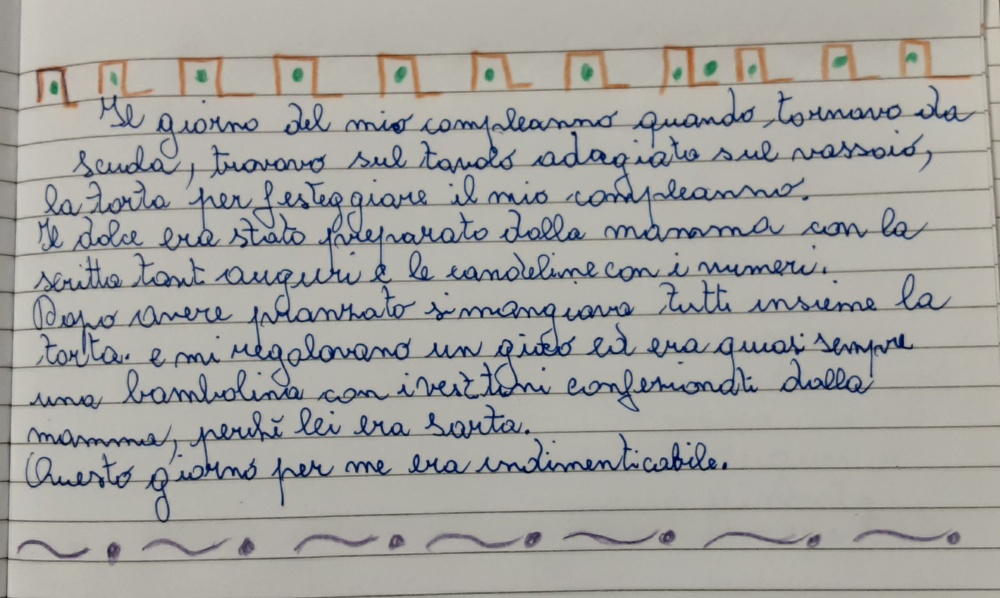 Il giorno del mio compleanno quando, tornavo da
scuola, trovavo sul tavolo adagiata sul vassoio,
la torta per festeggiare il mio compleanno.
Il dolce era stato preparato dalla mamma con la
scritta tanti auguri e le candeline con i numeri.
Dopo avere pranzato si mangiava tutti insieme la
torta. e mi regalavano un gioco ed era quasi sempre
una bambolina con i vestitini confezionati dalla
mamma, perché lei era sarta.
Questo giorno per me era indimenticabile.